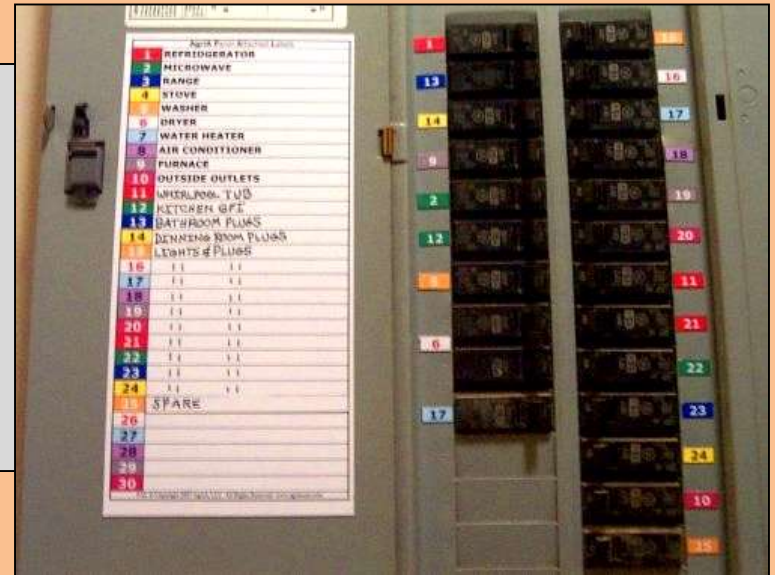 1 REFRIDGERATOR
2 MICROWAVE
3 RANGE
4 STOVE
5 WASHER
6 DRYER
7 WATER HEATER
8 AIR CONDITIONER
9 FURNACE
10 OUTSIDE OUTLETS
11 WHIRLPOOL TUB
12 KITCHEN GFI
13 BATHROOM PLUGS
14 DINNING ROOM PLUGS
15 LIGHTS & PLUGS
16 " "
17 " "
18 " "
19 " "
20 " "
21 " "
22 " "
23 " "
24 " "
25 SPARE
26
27
28
29
30
1
13
14
9
2
12
5
6
17
15
16
17
18
19
20
11
21
22
23
24
10
25